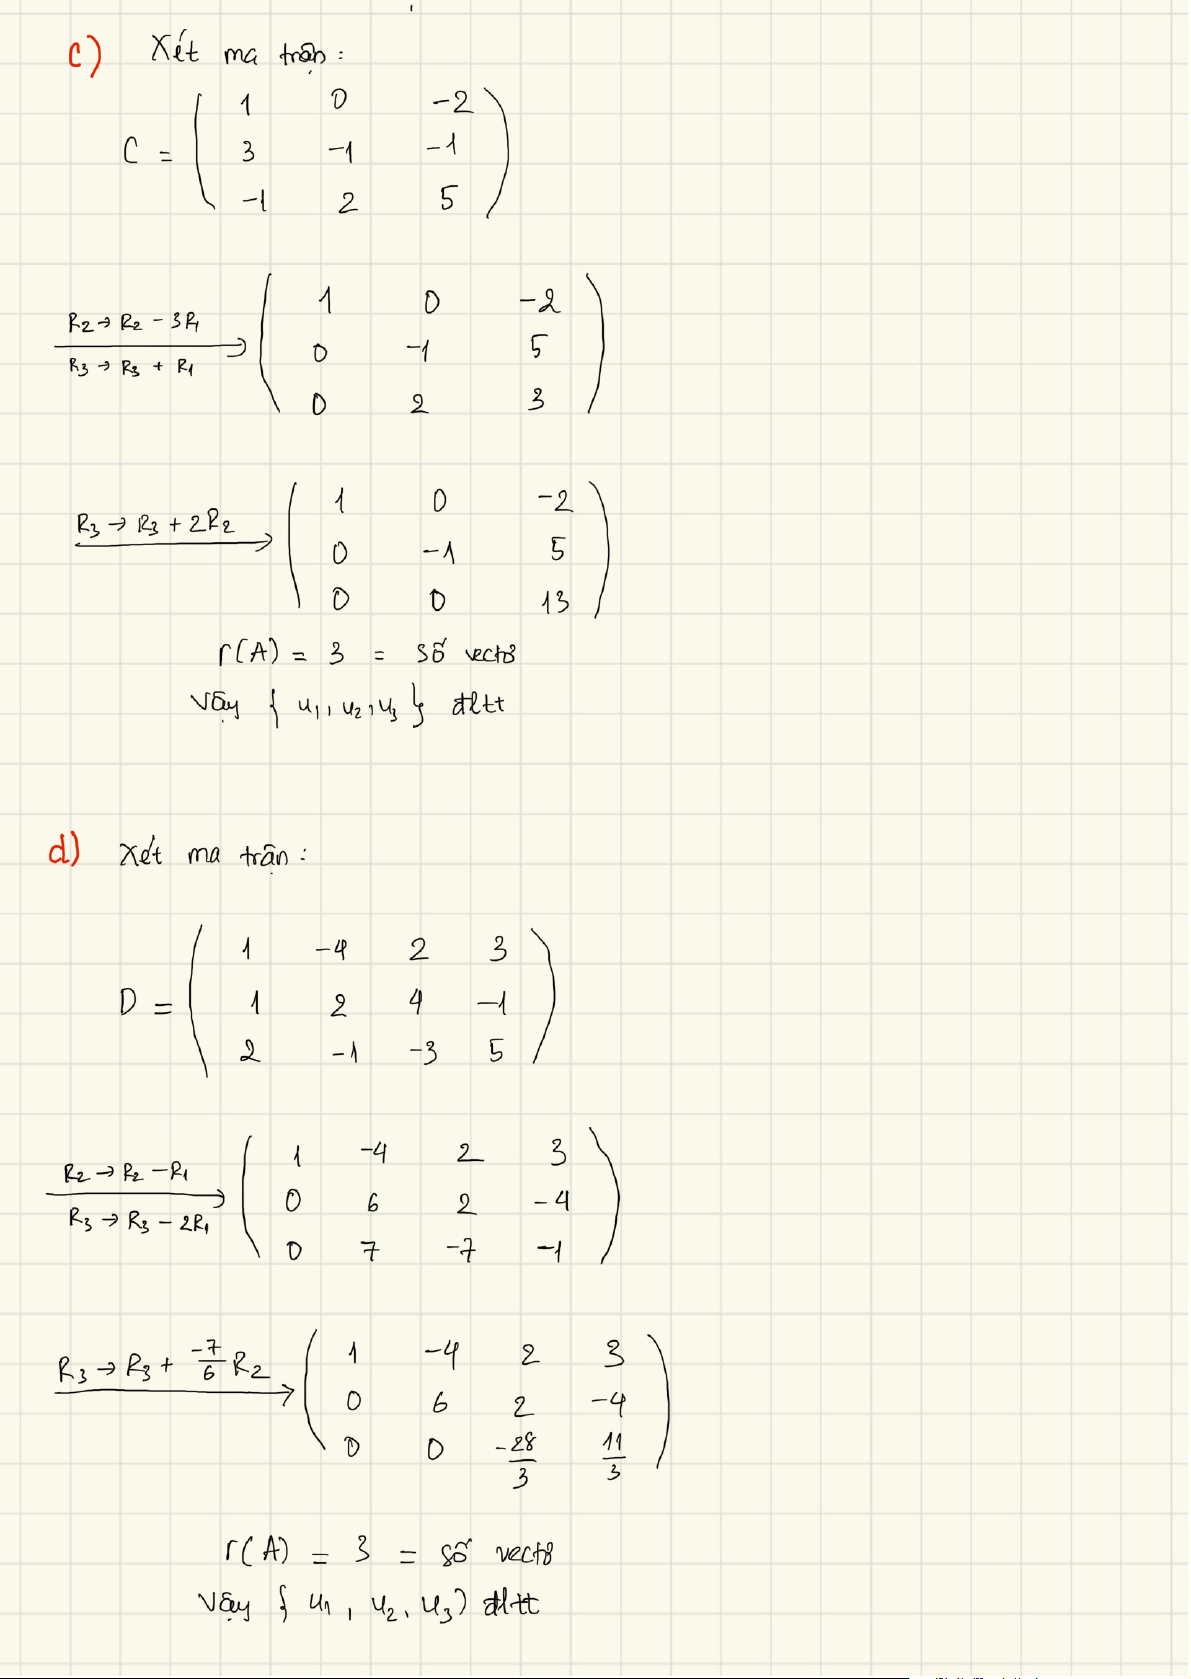 c) Xét ma trận :
C = ( 1 0 -2
3 -1 -1
-1 2 5 )
R2 → R2 - 3R1
R3 → R3 + R1
( 1 0 -2
0 -1 5
0 2 3 )
R3 → R3 + 2R2
( 1 0 -2
0 -1 5
0 0 13 )
r(A) = 3 = số vectơ
Vậy { u1, u2, u3 } đltt
d) Xét ma trận :
D = ( 1 -4 2 3
1 2 4 -1
2 -1 -3 5 )
R2 → R2 - R1
R3 → R3 - 2R1
( 1 -4 2 3
0 6 2 -4
0 7 -7 -1 )
R3 → R3 + -7/6 R2
( 1 -4 2 3
0 6 2 -4
0 0 -28/3 11/3 )
r(A) = 3 = số vectơ
Vậy { u1, u2, u3 ) đltt